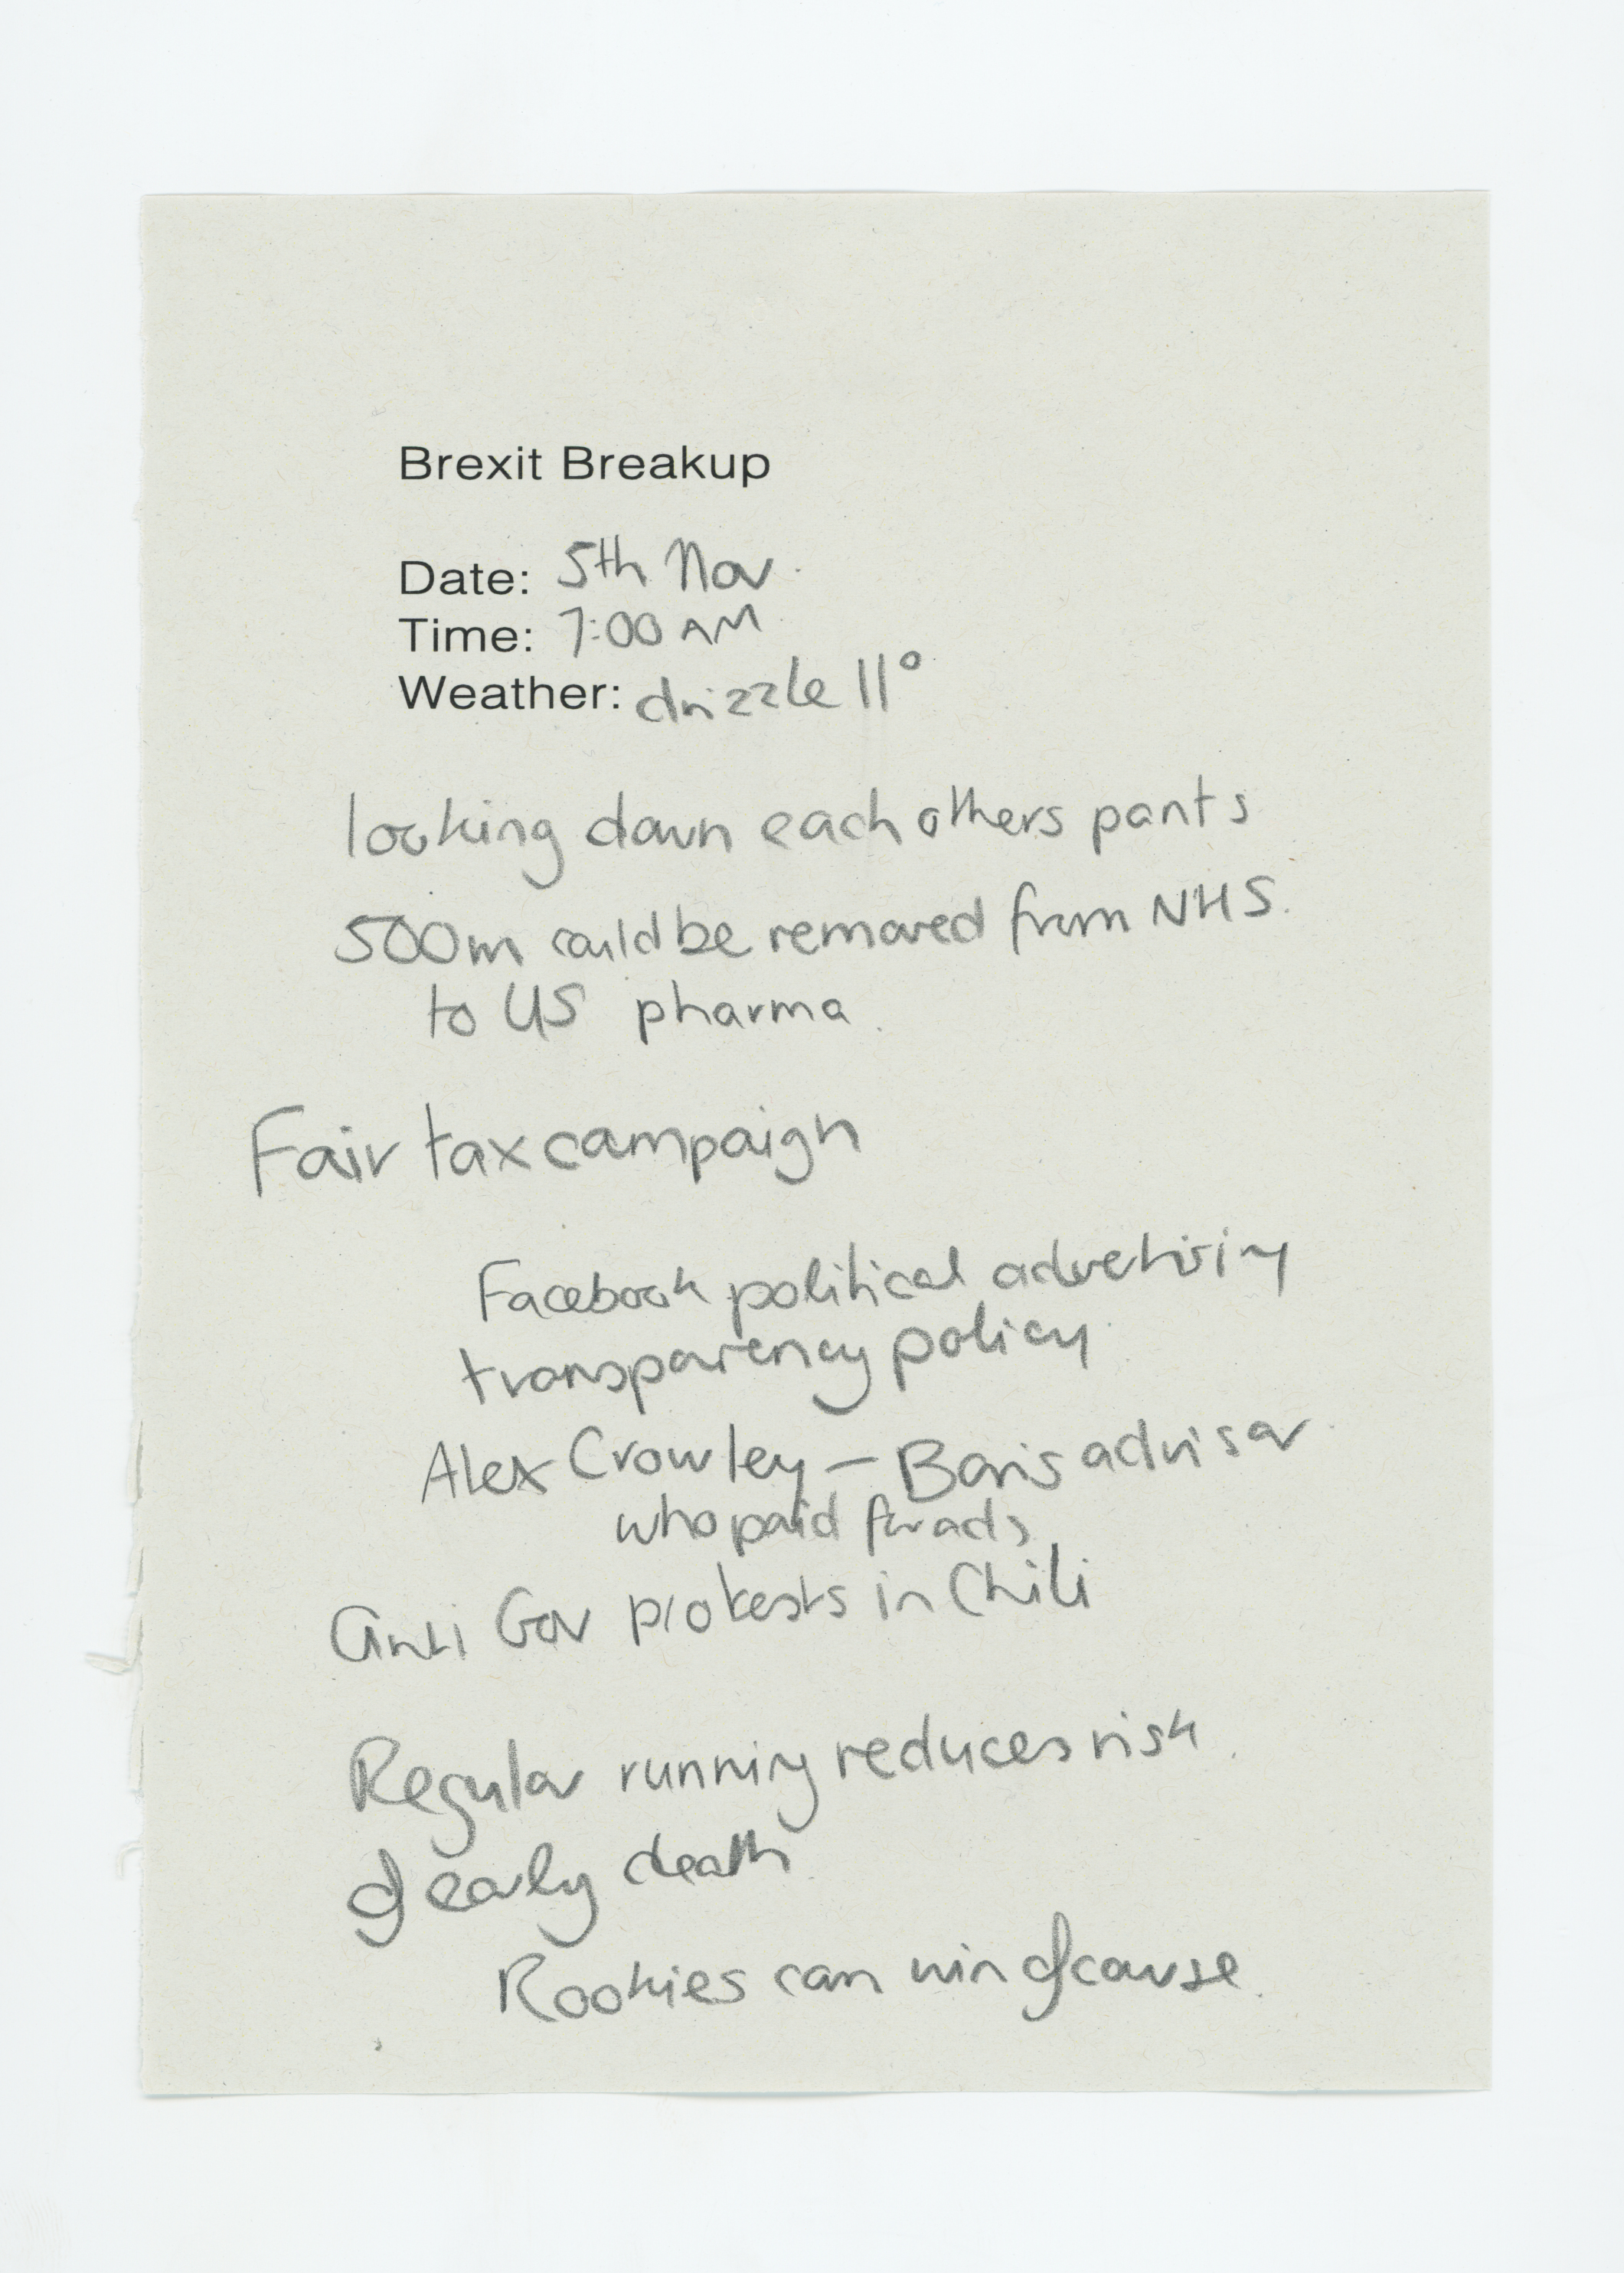 Brexit Breakup
Date: 5th Nov.
Time: 7:00 AM
Weather: drizzle 11°
looking down each others pants
500m could be removed from NHS.
to US pharma.
Fair tax campaign
Facebook political advertising
transparency policy.
Alex Crowley – Boris advisor.
who paid for ads
Anti Gov protests in Chili
Regular running reduces risk.
of early death.
Rookies can win of course.